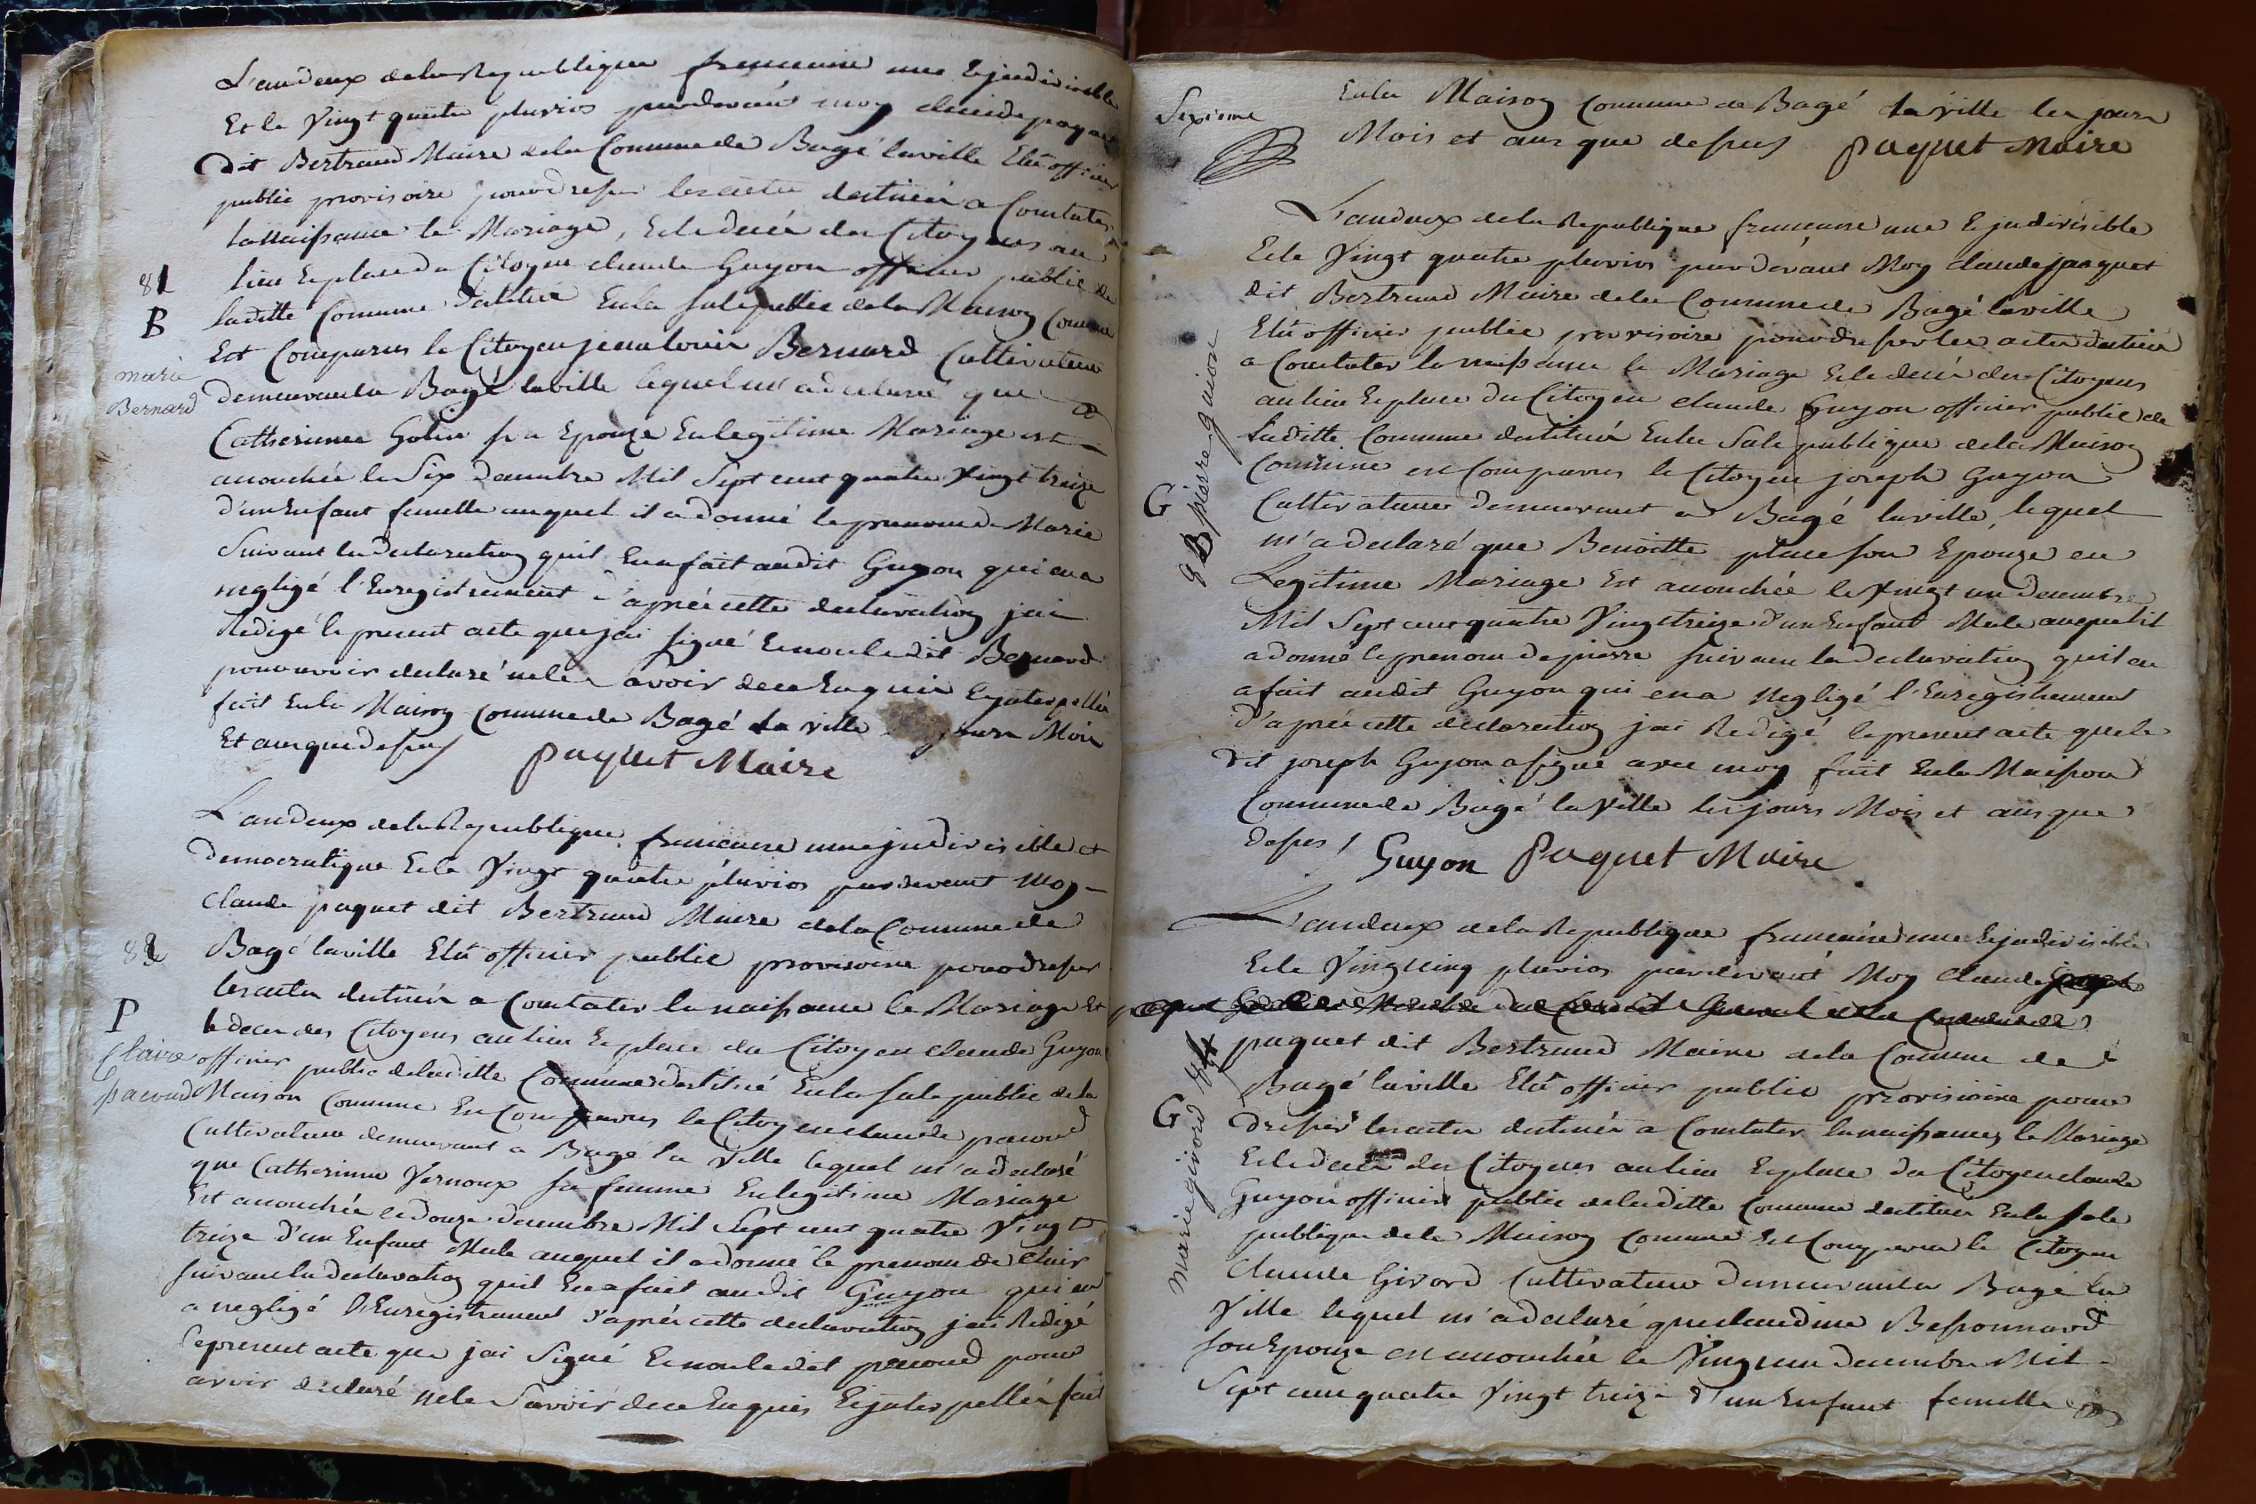 L'an deux de la Republique francaise une Et jndivisible
Et le Vingt quatre pluvios pardevant moy claude paquet
Dit Bertrand Maire de la Comune de Bagé laville Elû officier
public provisoire pour dresser les actes destinés a Constater
la naissance le Mariage, Et le decés des Citoyens au
lieu Et place du Citoyen claude Guyon officier public de
81
laditte Comune destitué En la sale public de la Maison Comune
B
Est Comparus le Citoyen jean louis Bernard Cultivateur
marie
Bernard
demeurant a Bagé laville lequel m'a declaré que
Catherinne Gobin sa Epouze En legitime Mariage est
accouchée le Six decembre Mil Sept cent quatre Vingt treize
d'un Enfant femelle auquel il a donné le prenom de Marie
Suivant la declaration quil En a fait audit Guyon qui en a
negligé l'Enregistrement d'aprés cette declaration jai
Redigé le present acte que jai signé Et non le dit Bernard
pour avoir declaré ne le savoir de ce Enquis Et jnterpellé
fait En la Maison Comune de Bagé La ville jours Mois
Et ans que dessus paquet Maire
L'an deux de la Republique francaise une jndivisible et
democratique Et le Vingt quatre pluvios pardevant Moy
claude paquet dit Bertrand Maire de la Comune de
82
Bagé laville Elû officier public provisoire pour dresser
les actes destinés a Constater la naissance le Mariage Et
P
le decés des Citoyens au lieu Et place du Citoyen claude Guyon
Claire
pacoud
officier public de laditte Comune destitué En la sale public de la
Maison Comune Est Comparus le Citoyen claude pacoud
Cultivateur demeurant a Bagé la Ville lequel m'a declaré
que Catherinne Vernoux sa femme En legitime Mariage
Est accouchée le douze decembre Mil Sept cent quatre Vingt
treize d'un Enfant Male auquel il a donné le prenom de Clair
suivant la declaration quil En a fait audit Guyon qui en
a negligé l'Enregistrement d'aprés cette declaration jai Redigé
le present acte que jai Signé Et non le dit pacoud pour
avoir declaré ne le Savoir de ce Enquis Et jnterpellé fait
Sixieme
En la Maison Comune de Bagé La Ville les jours
Mois et ans que dessus paquet Maire
L'an deux de la Republique francaise une Et jndivisible
Et le Vingt quatre pluvios pardevant Moy claude paquet
dit Bertrand Maire de la Comune de Bagé laville
Elû officier public provisoire pour dresser les actes destinés
a Constater la naissance le Mariage Et le decés des Citoyens
au lieu Et place du Citoyen claude Guyon officier public de
laditte Comune destitué En la Sale publique de la Maison
Comune est Comparus le Citoyen joseph Guyon
G
83 pierre guion
Cultivateur demeurant a Bagé laville, lequel
m'a declaré que Benoitte place son Epouze en
Legitime Mariage Est accouchée le Vingt un decembre
Mil Sept cent quatre Vingt treize d'un Enfant Male auquel il
a donné le prenom de pierre suivant la declaration quil en
a fait audit Guyon qui en a negligé l'Enregistrement
d'aprés cette declaration jai Redigé le present acte que le
Dit joseph Guyon a signé avec moy fait En la Maison
Comune de Bagé la Ville les jours Mois et ans que
dessus Guyon Paquet Maire
L'an deux de la Republique francaise une Et jndivisible
Et le Vingt cinq pluvios pardevant Moy Claude
paquet dit Bertrand Maire de la Comune de
Bagé laville Elû officier public provisoire pour
G
marie girord 84
dresser les actes destinés a Constater la naissances le Mariage
Et le decés des Citoyens au lieu Et place du Citoyen claude
Guyon officier public de laditte Comune destitué En la Sale
publique de la Maison Comune Est Comparus le Citoyen
Claude Girord Cultivateur demeurant a Bagé la
Ville lequel m'a declaré que claudine Bessonnard
son Epouze est accouchée le Vingt un decembre Mil
Sept cent quatre Vingt treize d'un Enfant femelle